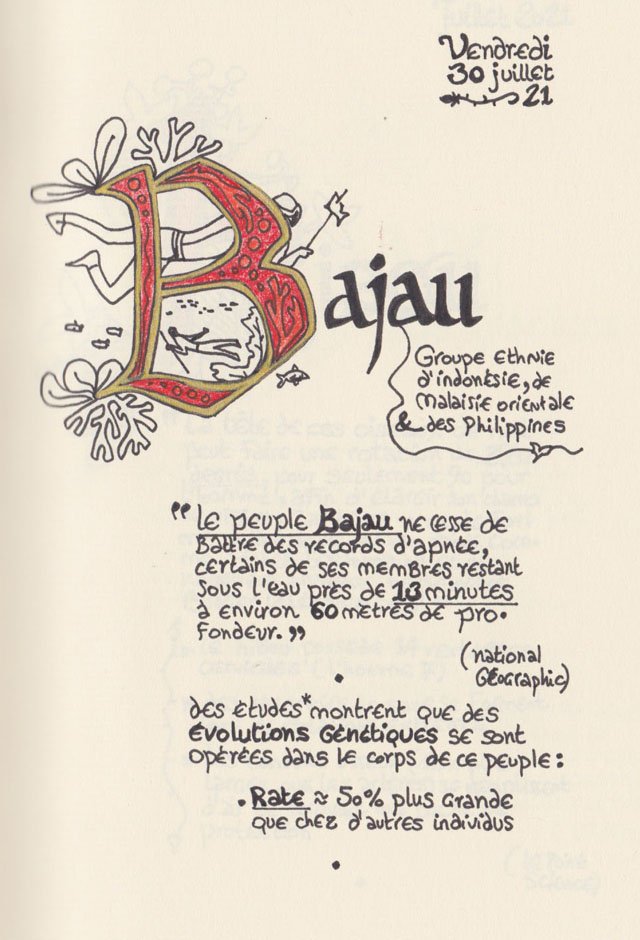 Vendredi
30 juillet
21
Bajau
Groupe ethnie
d'indonésie, de
malaisie orientale
& des Philippines
"Le peuple Bajau ne cesse de
battre des records d'apnée,
certains de ses membres restant
sous l'eau près de 13 minutes
à environ 60 mètres de pro-
fondeur."
(national
Géographic)
•
des études* montrent que des
évolutions génétiques se sont
opérées dans le corps de ce peuple :
• Rate ≈ 50% plus grande
que chez d'autres individus
•